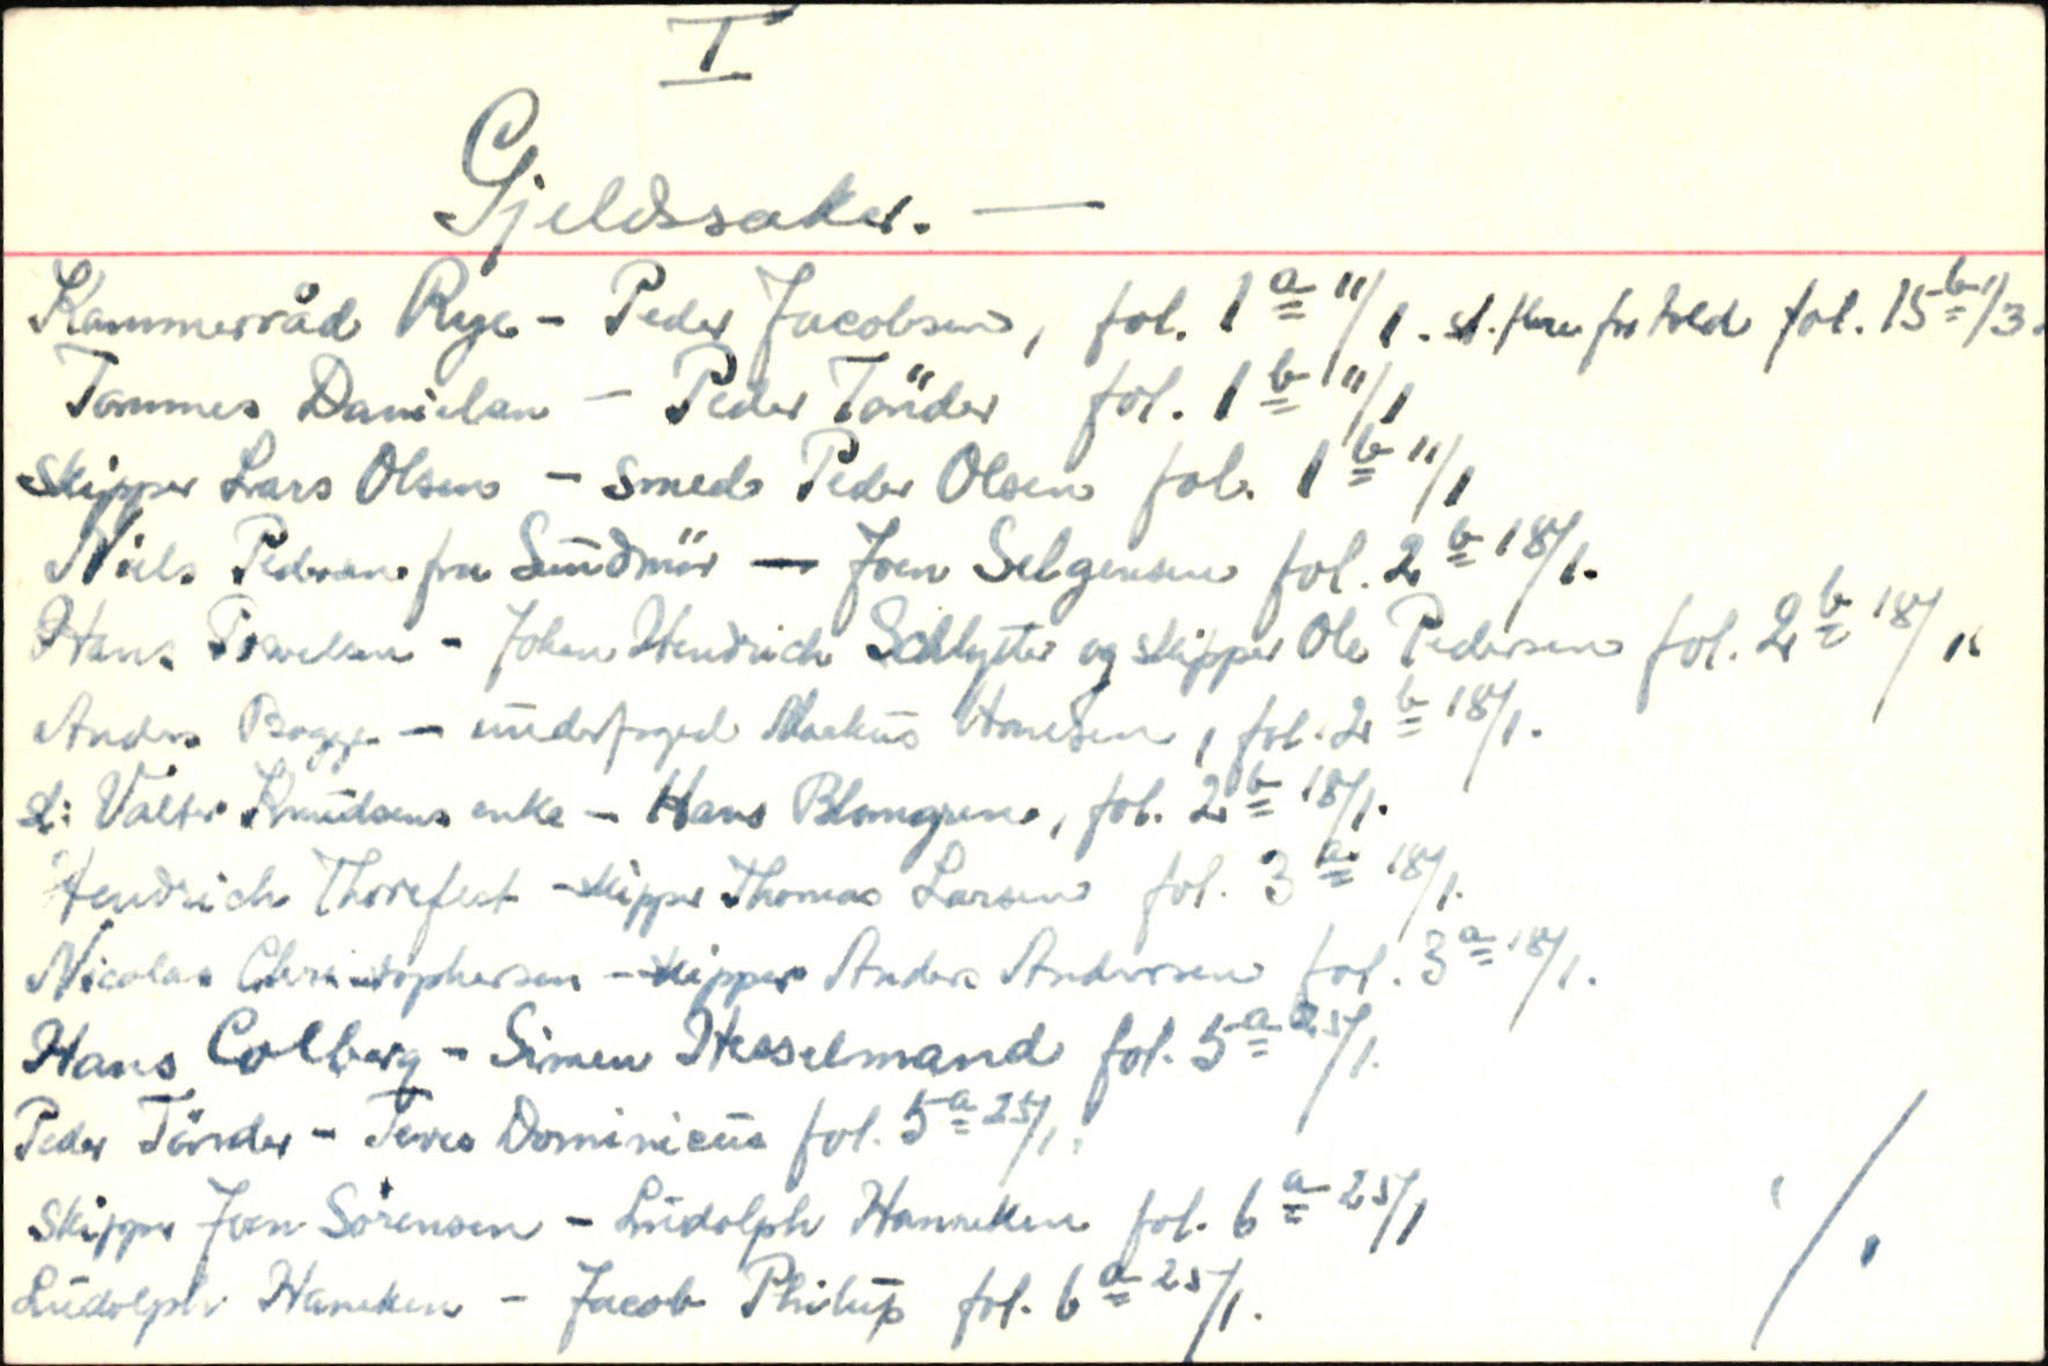 I
Gjeldssaker. —
Kammerråd Rye - Peder Jacobsen, fol. 1a 11/1. fol. 15b 1/3.
Tønnes Danielsen - Peder Tönder fol. 1b 11/1
Skipper Lars Olsen - smed Peder Olsen fol. 1b 11/1
Niels Pedersen fra Sundmör - Joen Selgensen fol. 2b 18/1.
Hans Powelsen - Johan Hendrich Schlytter og skipper Ole Pedersen fol. 2b 18/1.
Anders Bagge - underfoged Markus Hansen, fol. 2b 18/1.
Sl: Valter Knudsens enke - Hans Blomgren, fol. 2b 18/1.
Hendrich Thorefest - skipper Thomas Larsen fol. 3a 18/1.
Nicolas Christophersen - skipper Anders Andersen fol. 3a 18/1.
Hans Colberg - Simen Hesselmand fol. 5a 25/1.
Peder Tönder - Tewes Dominicus fol. 5a 25/1.
Skipper Joen Sörensen - Ludolph Hanneken fol. 6a 25/1
Ludolph Haneken - Jacob Philup fol. 6a 25/1.
./.